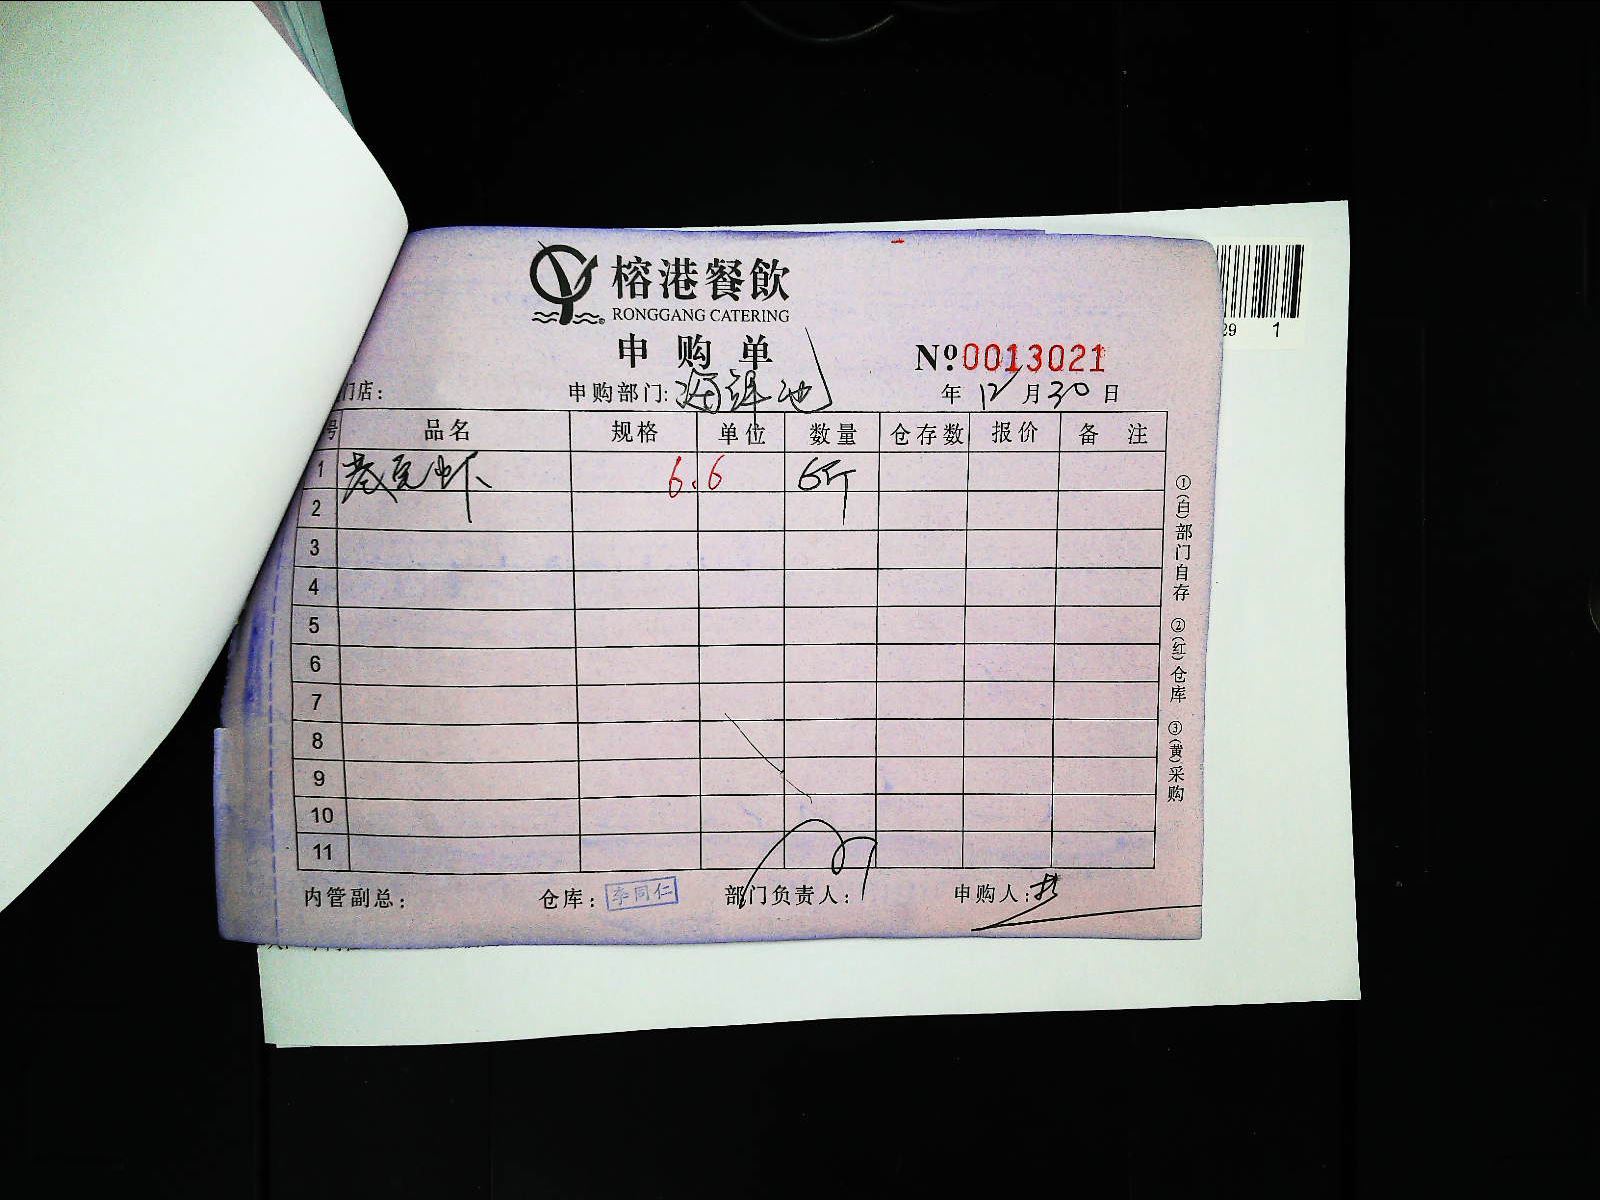 榕港餐飲
RONGGANG CATERING
申购单
№0013021
29 1
门店： 申购部门：海鲜池 年 12 月 30 日
号 品名 规格 单位 数量 仓存数 报价 备 注
1 虾 6.6 6斤
2
3
4
5
6
7
8
9
10
11
①(白)部门自存 ②(红)仓库 ③(黄)采购
内管副总： 仓库：李同仁 部门负责人： 申购人：